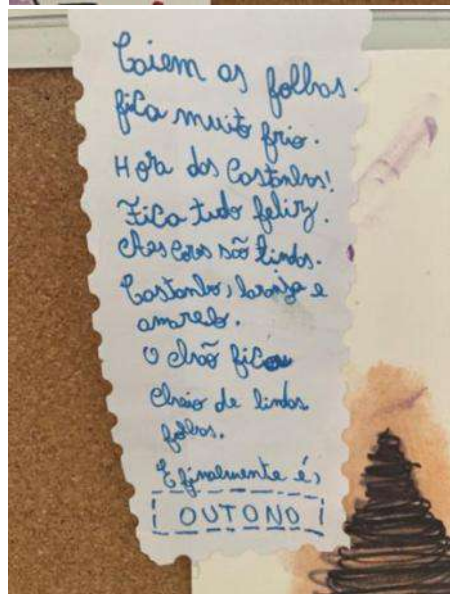 Caiem as folhas.
fica muito frio.
Hora das Castanhas!
Fica tudo feliz.
As cores são lindas.
Castanho, laranja e
amarelo.
O chão fica
cheio de lindas
folhas.
E finalmente é:
OUTONO